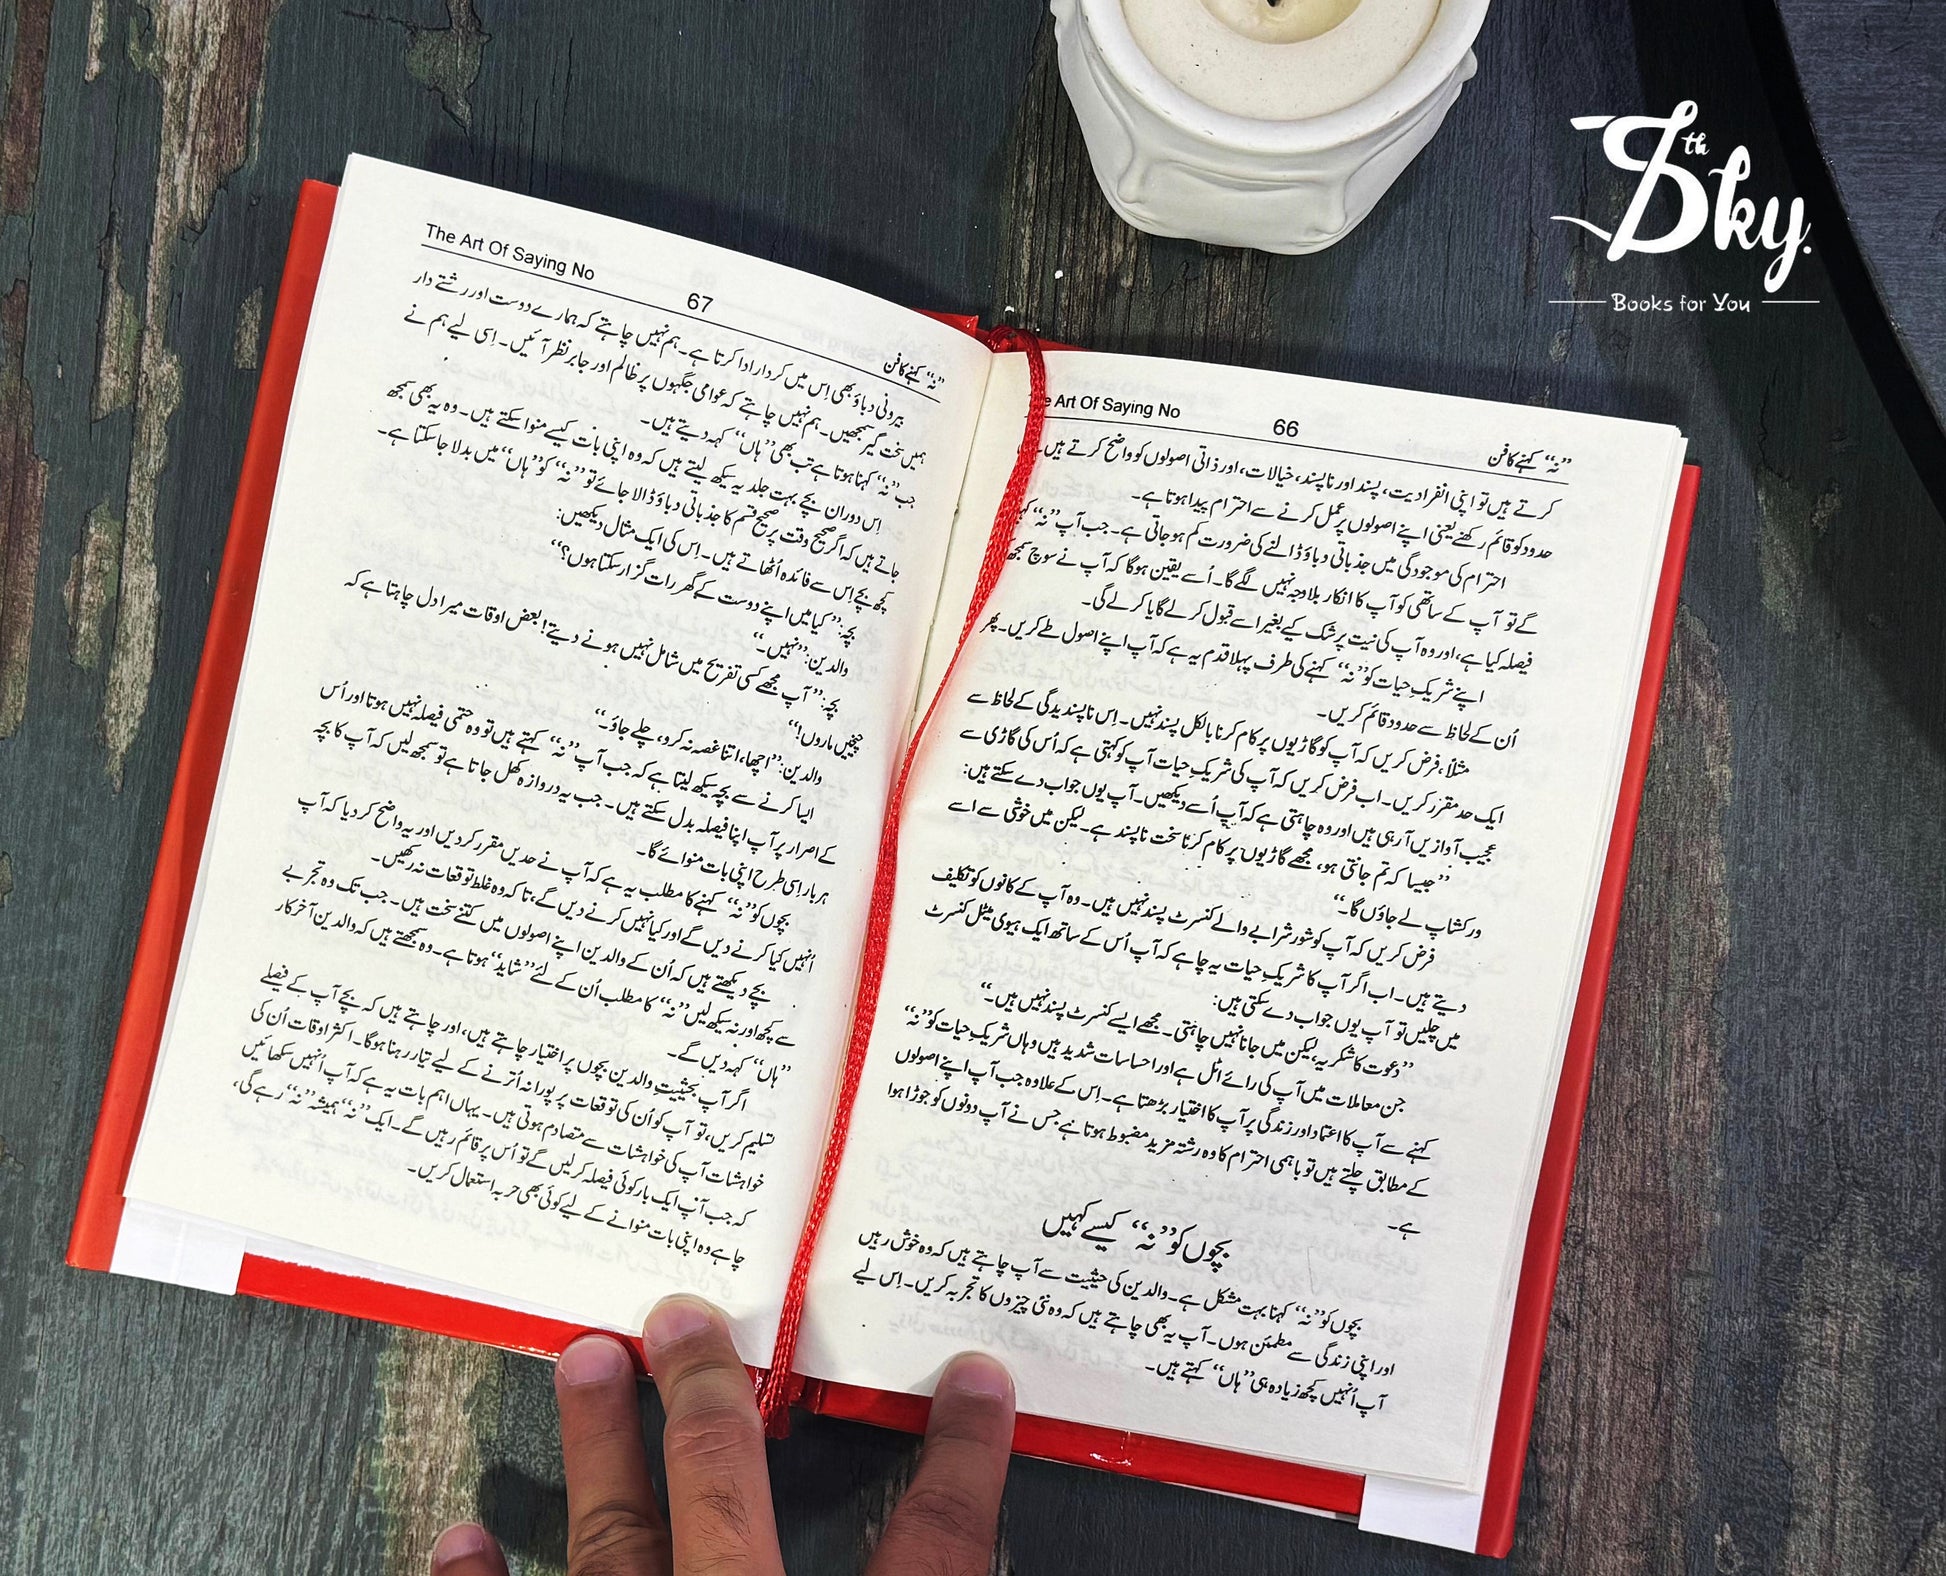 The Art Of Saying No
66
”نہ“ کہنے کا فن
کرتے ہیں تو اپنی انفرادیت، پسند اور ناپسند، خیالات، اور ذاتی اصولوں کو واضح کرتے ہیں۔
حدود کو قائم رکھنے یعنی اپنے اصولوں پر عمل کرنے سے احترام پیدا ہوتا ہے۔
احترام کی موجودگی میں جذباتی دباؤ ڈالنے کی ضرورت کم ہو جاتی ہے۔ جب آپ ”نہ“
گے تو آپ کے ساتھی کو آپ کا انکار بلاوجہ نہیں لگے گا۔ اُسے یقین ہوگا کہ آپ نے سوچ سمجھ
فیصلہ کیا ہے، اور وہ آپ کی نیت پر شک کیے بغیر اسے قبول کرلے گا یا کرلے گی۔
اپنے شریکِ حیات کو ”نہ“ کہنے کی طرف پہلا قدم یہ ہے کہ آپ اپنے اصول طے کریں۔ پھر
اُن کے لحاظ سے حدود قائم کریں۔
مثلاً، فرض کریں کہ آپ کو گاڑیوں پر کام کرنا بالکل پسند نہیں۔ اِس ناپسندیدگی کے لحاظ سے
ایک حد مقرر کریں۔ اب فرض کریں کہ آپ کی شریکِ حیات آپ کو کہتی ہے کہ اُس کی گاڑی سے
عجیب آوازیں آرہی ہیں اور وہ چاہتی ہے کہ آپ اُسے دیکھیں۔ آپ یوں جواب دے سکتے ہیں:
”جیسا کہ تم جانتی ہو، مجھے گاڑیوں پر کام کرنا سخت ناپسند ہے۔ لیکن میں خوشی سے اسے
ورکشاپ لے جاؤں گا۔“
فرض کریں کہ آپ کو شور شرابے والے کنسرٹ پسند نہیں ہیں۔ وہ آپ کے کانوں کو تکلیف
دیتے ہیں۔ اب اگر آپ کا شریکِ حیات یہ چاہے کہ آپ اُس کے ساتھ ایک ہیوی میٹل کنسرٹ
میں چلیں تو آپ یوں جواب دے سکتی ہیں:
”دعوت کا شکریہ، لیکن میں جانا نہیں چاہتی۔ مجھے ایسے کنسرٹ پسند نہیں ہیں۔“
جن معاملات میں آپ کی رائے اٹل ہے اور احساسات شدید ہیں وہاں شریکِ حیات کو ”نہ“
کہنے سے آپ کا اعتماد اور زندگی پر آپ کا اختیار بڑھتا ہے۔ اِس کے علاوہ جب آپ اپنے اصولوں
کے مطابق چلتے ہیں تو باہمی احترام کا وہ رشتہ مزید مضبوط ہوتا ہے جس نے آپ دونوں کو جوڑا ہوا
ہے۔
بچوں کو ”نہ“ کیسے کہیں
بچوں کو ”نہ“ کہنا بہت مشکل ہے۔ والدین کی حیثیت سے آپ چاہتے ہیں کہ وہ خوش رہیں
اور اپنی زندگی سے مطمئن ہوں۔ آپ یہ بھی چاہتے ہیں کہ وہ نئی چیزوں کا تجربہ کریں۔ اِس لیے
آپ اُنہیں کچھ زیادہ ہی ”ہاں“ کہتے ہیں۔
The Art Of Saying No
67
”نہ“ کہنے کا فن
بیرونی دباؤ بھی اِس میں کردار ادا کرتا ہے۔ ہم نہیں چاہتے کہ ہمارے دوست اور رشتے دار
ہمیں سخت گیر سمجھیں۔ ہم نہیں چاہتے کہ عوامی جگہوں پر ظالم اور جابر نظر آئیں۔ اِسی لیے ہم نے
جب ”نہ“ کہنا ہوتا ہے تب بھی ”ہاں“ کہہ دیتے ہیں۔
اِس دوران بچے بہت جلد یہ سیکھ لیتے ہیں کہ وہ اپنی بات کیسے منوا سکتے ہیں۔ وہ یہ بھی سمجھ
جاتے ہیں کہ اگر صحیح وقت پر صحیح قسم کا جذباتی دباؤ ڈالا جائے تو ”نہ“ کو ”ہاں“ میں بدلا جاسکتا ہے۔
کچھ بچے اِس سے فائدہ اُٹھاتے ہیں۔ اِس کی ایک مثال دیکھیں:
بچہ: ”کیا میں اپنے دوست کے گھر رات گزار سکتا ہوں؟“
والدین: ”نہیں۔“
بچہ: ”آپ مجھے کسی تفریح میں شامل نہیں ہونے دیتے! بعض اوقات میرا دل چاہتا ہے کہ
چیخیں ماروں!“
والدین: ”اچھا، اتنا غصہ نہ کرو، چلے جاؤ۔“
ایسا کرنے سے بچہ سیکھ لیتا ہے کہ جب آپ ”نہ“ کہتے ہیں تو وہ حتمی فیصلہ نہیں ہوتا اور اُس
کے اصرار پر آپ اپنا فیصلہ بدل سکتے ہیں۔ جب یہ دروازہ کھل جاتا ہے تو سمجھ لیں کہ آپ کا بچہ
ہر بار اِسی طرح اپنی بات منوائے گا۔
بچوں کو ”نہ“ کہنے کا مطلب یہ ہے کہ آپ نے حدیں مقرر کر دیں اور یہ واضح کر دیا کہ آپ
اُنہیں کیا کرنے دیں گے اور کیا نہیں کرنے دیں گے، تا کہ وہ غلط توقعات نہ رکھیں۔
بچے دیکھتے ہیں کہ اُن کے والدین اپنے اصولوں میں کتنے سخت ہیں۔ جب تک وہ تجربے
سے کچھ اور نہ سیکھ لیں ”نہ“ کا مطلب اُن کے لئے ”شاید“ ہوتا ہے۔ وہ سمجھتے ہیں کہ والدین آخرکار
”ہاں“ کہہ دیں گے۔
اگر آپ بحیثیت والدین بچوں پر اختیار چاہتے ہیں، اور چاہتے ہیں کہ بچے آپ کے فیصلے
تسلیم کریں، تو آپ کو اُن کی توقعات پر پورا نہ اُترنے کے لیے تیار رہنا ہوگا۔ اکثر اوقات اُن کی
خواہشات آپ کی خواہشات سے متصادم ہوتی ہیں۔ یہاں اہم بات یہ ہے کہ آپ اُنہیں سکھائیں
کہ جب آپ ایک بار کوئی فیصلہ کرلیں گے تو اُس پر قائم رہیں گے۔ ایک ”نہ“ ہمیشہ ”نہ“ رہے گی،
چاہے وہ اپنی بات منوانے کے لیے کوئی بھی حربہ استعمال کریں۔
7th Sky.
Books for You